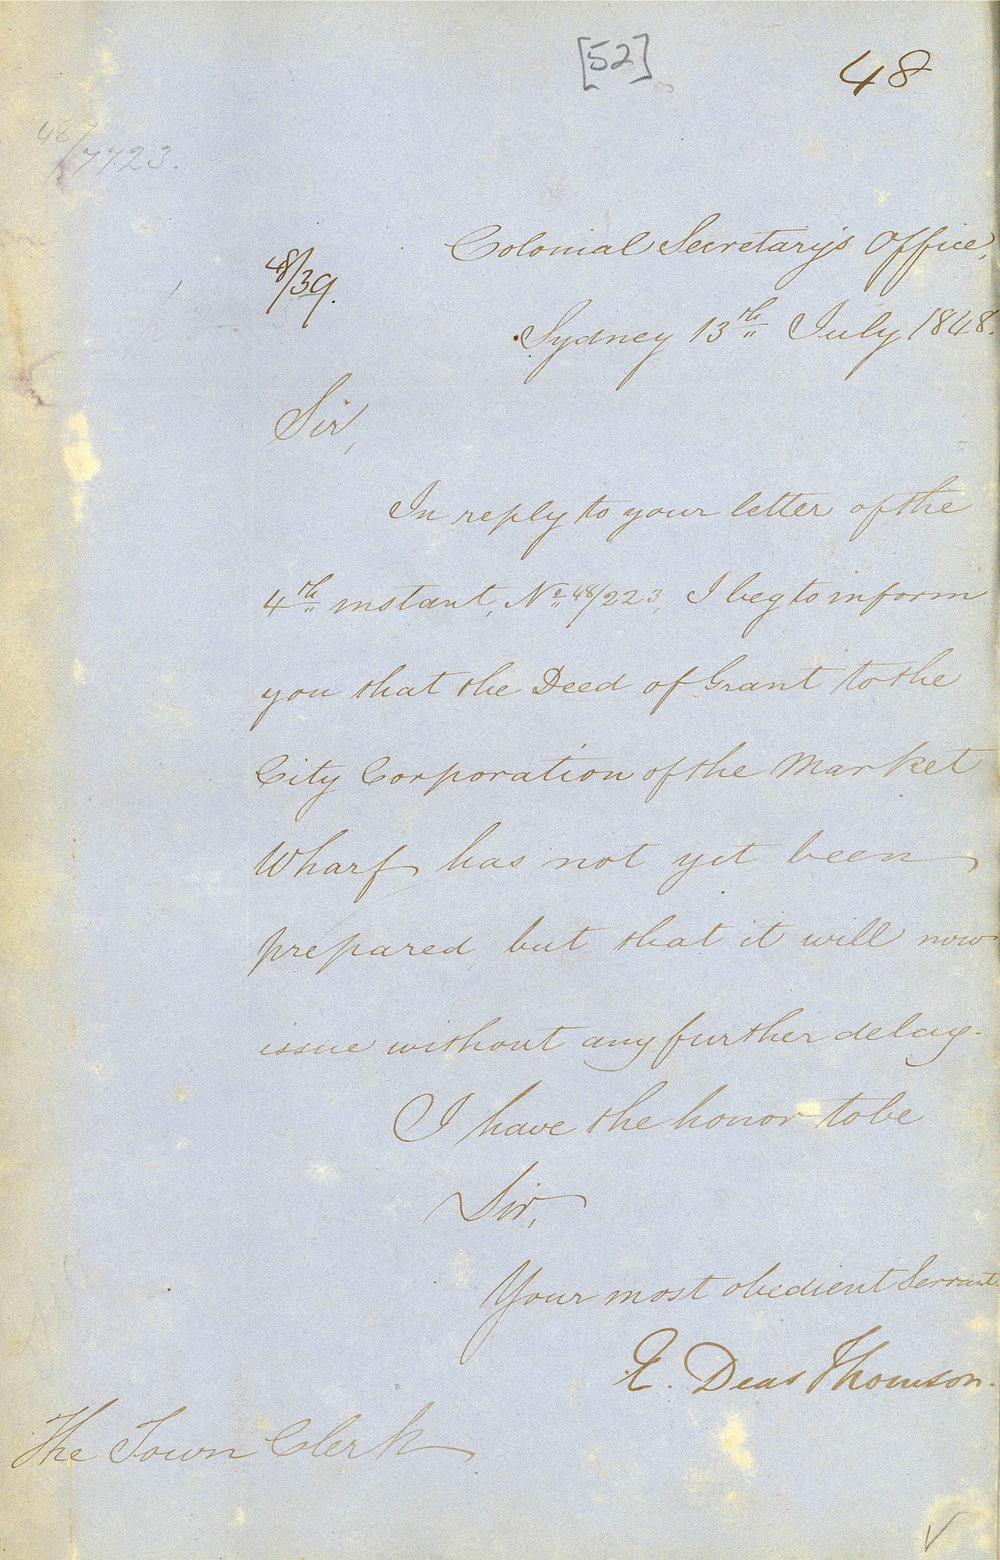 [52]
48
48/7723.
Colonial Secretary's Office,
48/39.
Sydney 13th July 1848.
Sir,
In reply to your letter of the
4th instant, No 48/223, I beg to inform
you that the Deed of Grant to the
City Corporation of the Market
Wharf has not yet been
prepared, but that it will now
issue without any further delay.
I have the honor to be
Sir,
Your most obedient Servant
E. Deas Thomson.
The Town Clerk